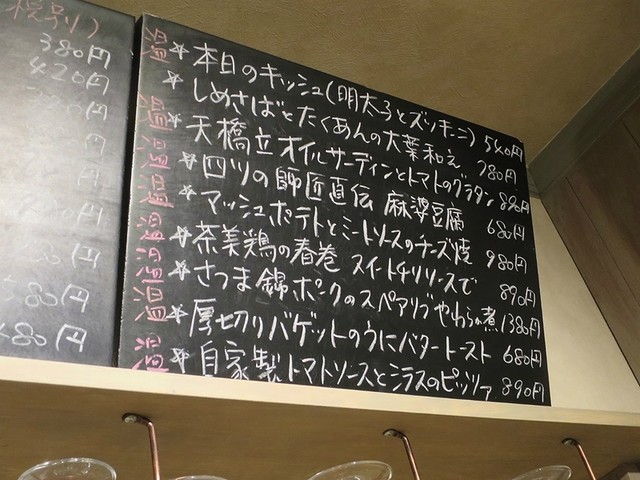 税別)
380円
420円
80円
480円
温 ☆ 本日のキッシュ(明太子とズッキーニ) 540円
☆ しめさばとたくあんの大葉和え 780円
温 ☆ 天橋立オイルサーディンとトマトのグラタン 880円
温 ☆ 四ツの師匠直伝 麻婆豆腐 680円
温 ☆ マッシュポテトとミートソースのチーズ焼 980円
温 ☆ 茶美鶏の春巻 スイートチリソースで 890円
温 ☆ さつま錦ポークのスペアリブやわらか煮 1380円
温 ☆ 厚切りバゲットのうにバタートースト 680円
温 ☆ 自家製トマトソースとシラスのピッツァ 890円